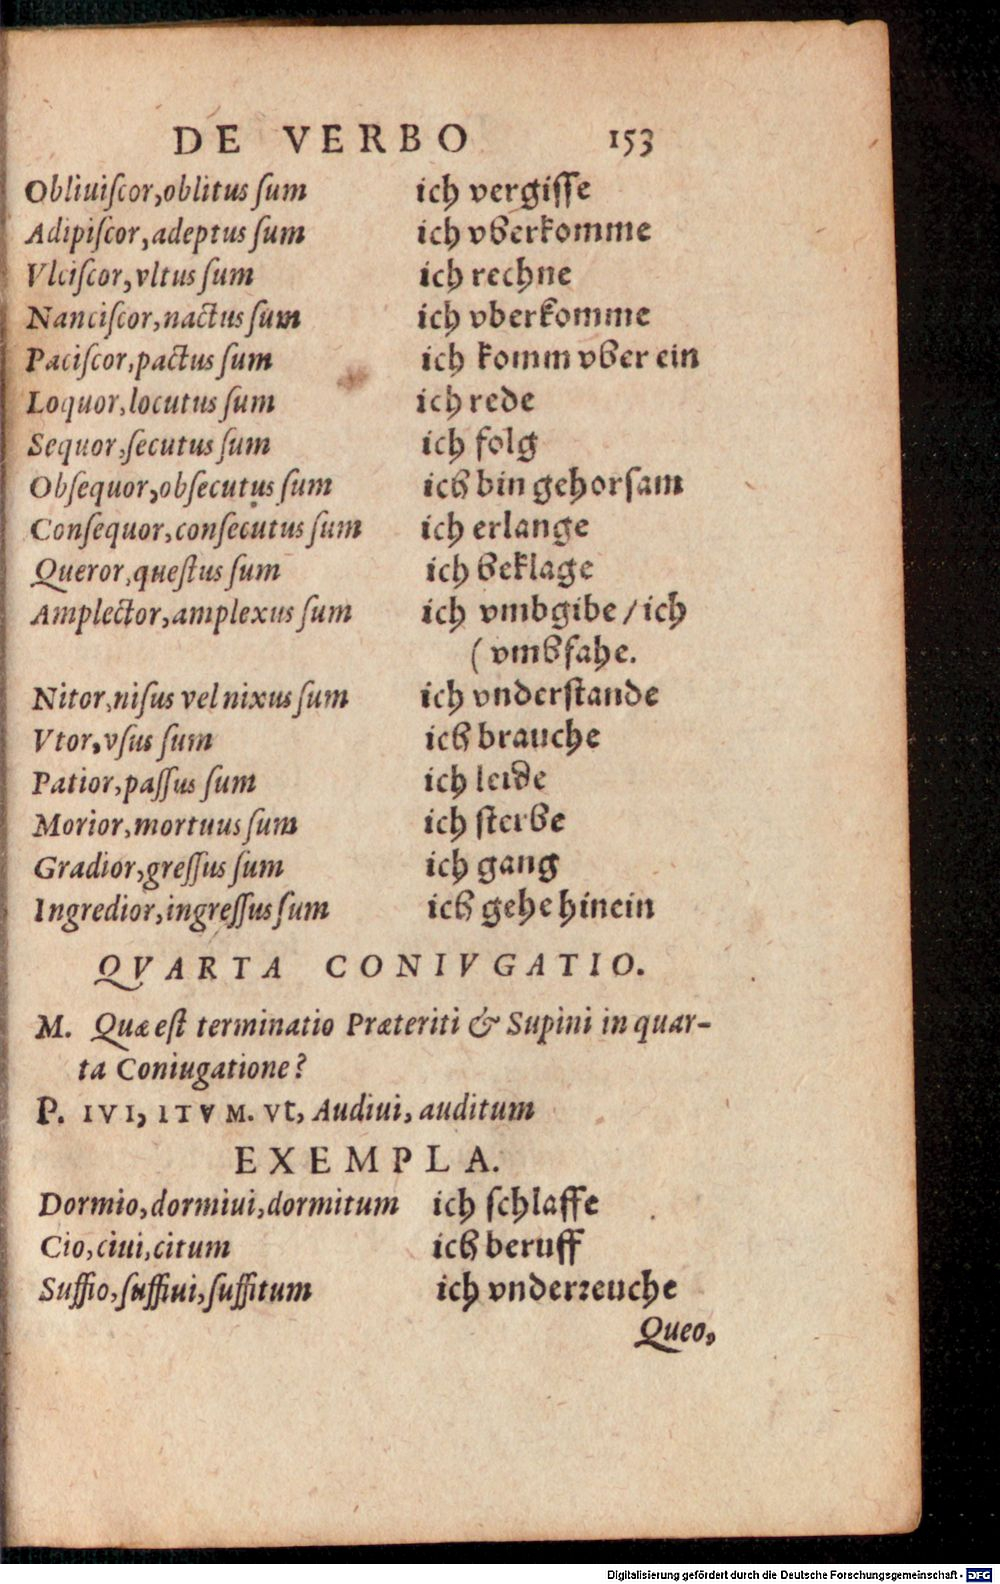 DE VERBO 153
Obliuiſcor,oblitus ſum ich vergiſſe
Adipiſcor,adeptus ſum ich vberkomme
Vlciſcor,vltus ſum ich rechne
Nanciſcor,nactus ſum ich vberkomme
Paciſcor,pactus ſum ich komm vber ein
Loquor,locutus ſum ich rede
Sequor,ſecutus ſum ich folg
Obſequor,obſecutus ſum ich bin gehorſam
Conſequor,conſecutus ſum ich erlange
Queror,queſtus ſum ich beklage
Amplector,amplexus ſum ich vmbgibe / ich
( vmbfahe.
Nitor,niſus vel nixus ſum ich vnderſtande
Vtor,vſus ſum ich brauche
Patior,paſſus ſum ich leide
Morior,mortuus ſum ich ſterbe
Gradior,greſſus ſum ich gang
Ingredior,ingreſſus ſum ich gehe hinein
QVARTA CONIVGATIO.
M. Quæ eſt terminatio Præteriti & Supini in quar-
ta Coniugatione?
P. IVI, ITVM. Vt, Audiui, auditum
EXEMPLA.
Dormio,dormiui,dormitum ich ſchlaffe
Cio,ciui,citum ich beruff
Suffio,ſuffiui,ſuffitum ich vnderzeuche
Queo,
Digitalisierung gefördert durch die Deutsche Forschungsgemeinschaft - DFG